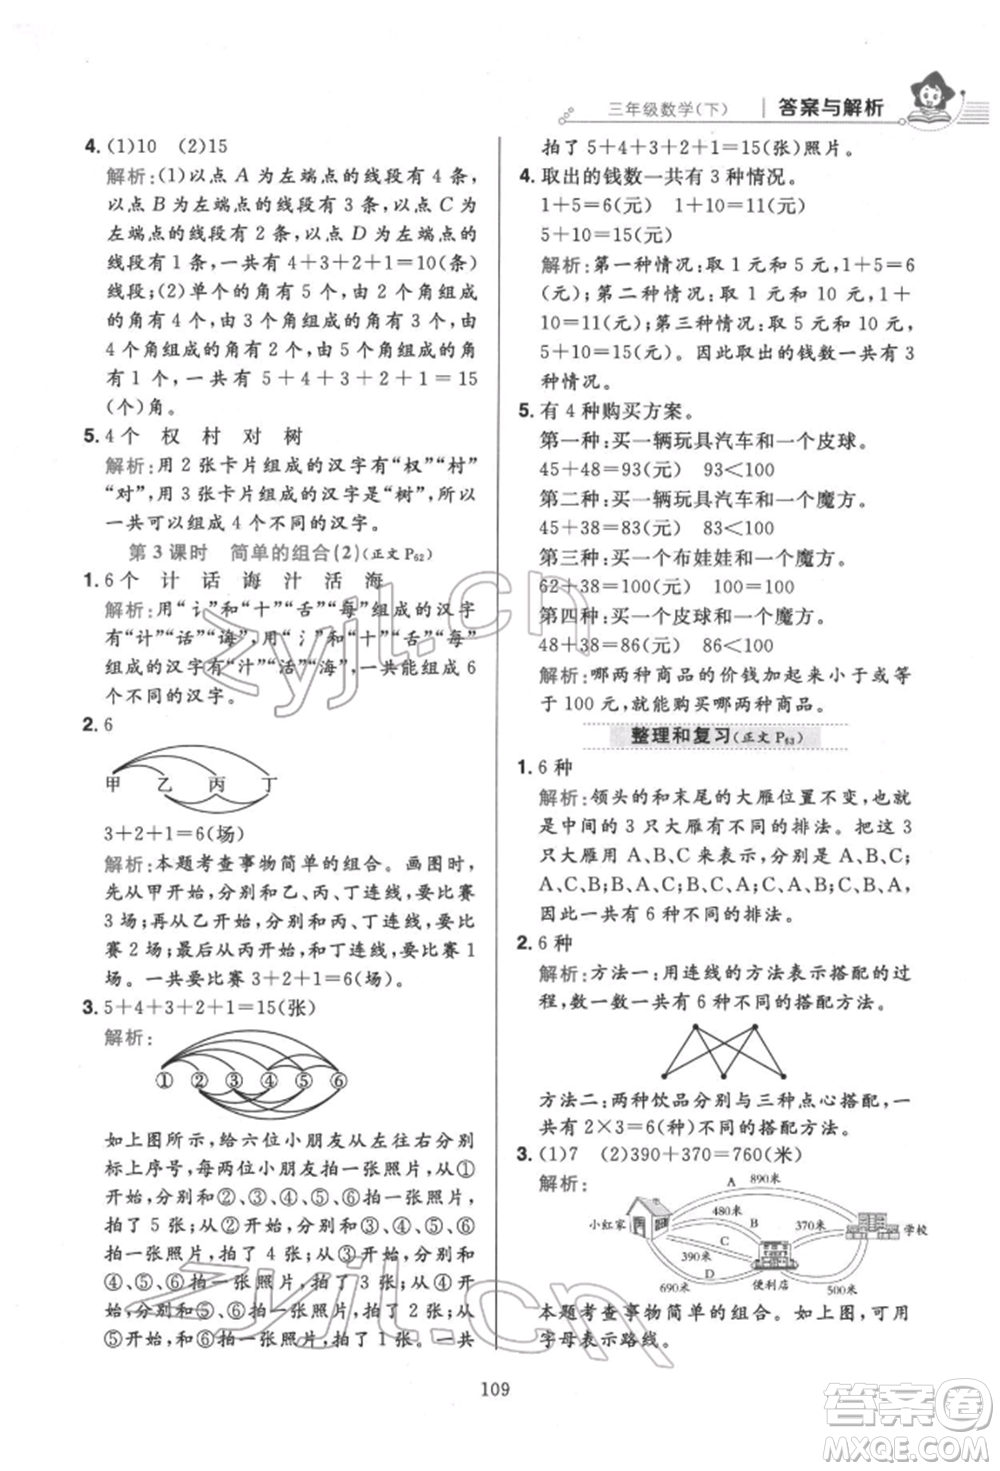 三年级数学(下) 答案与解析
4. (1)10 (2)15
解析:(1)以点 A 为左端点的线段有 4 条,
以点 B 为左端点的线段有 3 条,以点 C 为
左端点的线段有 2 条,以点 D 为左端点的
线段有 1 条,一共有 4+3+2+1=10(条)
线段;(2)单个的角有 5 个,由 2 个角组成
的角有 4 个,由 3 个角组成的角有 3 个,由
4 个角组成的角有 2 个,由 5 个角组成的角
有 1 个,一共有 5+4+3+2+1=15
(个)角。
5. 4 个 权 村 对 树
解析:用 2 张卡片组成的汉字有“权”“村”
“对”,用 3 张卡片组成的汉字有“树”,所以
一共可以组成 4 个不同的汉字。
第 3 课时 简单的组合(2)(正文 P52)
1. 6 个 计 话 诲 汁 活 海
解析:用“讠”和“十”“舌”“每”组成的汉字
有“计”“话”“诲”,用“氵”和“十”“舌”“每”
组成的汉字有“汁”“活”“海”,一共能组成 6
个不同的汉字。
2. 6
甲 乙 丙 丁
3+2+1=6(场)
解析:本题考查事物简单的组合。画图时,
先从甲开始,分别和乙、丙、丁连线,要比赛
3 场;再从乙开始,分别和丙、丁连线,要比赛
2 场;最后从丙开始,和丁连线,要比赛 1
场。一共要比赛 3+2+1=6(场)。
3. 5+4+3+2+1=15(张)
解析:
① ② ③ ④ ⑤ ⑥
如上图所示,给六位小朋友从左往右分别
标上序号,每两位小朋友拍一张照片,从①
开始,分别和②③④⑤⑥拍一张照片,
拍了 5 张;从②开始,分别和③④⑤⑥拍
一张照片,拍了 4 张;从③开始,分别和
④、⑤、⑥拍一张照片,拍了 3 张;从④开
始,分别和⑤⑥拍一张照片,拍了 2 张;从
⑤开始,和⑥拍一张照片,拍了 1 张。一共
拍了 5+4+3+2+1=15(张)照片。
4. 取出的钱数一共有 3 种情况。
1+5=6(元) 1+10=11(元)
5+10=15(元)
解析:第一种情况:取 1 元和 5 元,1+5=6
(元);第二种情况:取 1 元和 10 元,1+
10=11(元);第三种情况:取 5 元和 10 元,
5+10=15(元)。因此取出的钱数一共有 3
种情况。
5. 有 4 种购买方案。
第一种:买一辆玩具汽车和一个皮球。
45+48=93(元) 93<100
第二种:买一辆玩具汽车和一个魔方。
45+38=83(元) 83<100
第三种:买一个布娃娃和一个魔方。
62+38=100(元) 100=100
第四种:买一个皮球和一个魔方。
48+38=86(元) 86<100
解析:哪两种商品的价钱加起来小于或等
于 100 元,就能购买哪两种商品。
整理和复习(正文 P53)
1. 6 种
解析:领头的和末尾的大雁位置不变,也就
是中间的 3 只大雁有不同的排法。把这 3
只大雁用 A、B、C 来表示,分别是 A、B、C;
A、C、B;B、A、C;B、C、A;C、A、B;C、B、A。
因此一共有 6 种不同的排法。
2. 6 种
解析:方法一:用连线的方法表示搭配的过
程,数一数一共有 6 种不同的搭配方法。
方法二:两种饮品分别与三种点心搭配,一
共有 2×3=6(种)不同的搭配方法。
3. (1)7 (2)390+370=760(米)
解析:
A 890米
480米 B 370米
小红家 学校
C
390米
D
690米 便利店 500米
本题考查事物简单的组合。如上图,可用
字母表示路线。
109
zyjl.cn
zyjl.cn
答案圈
MXQE.COM